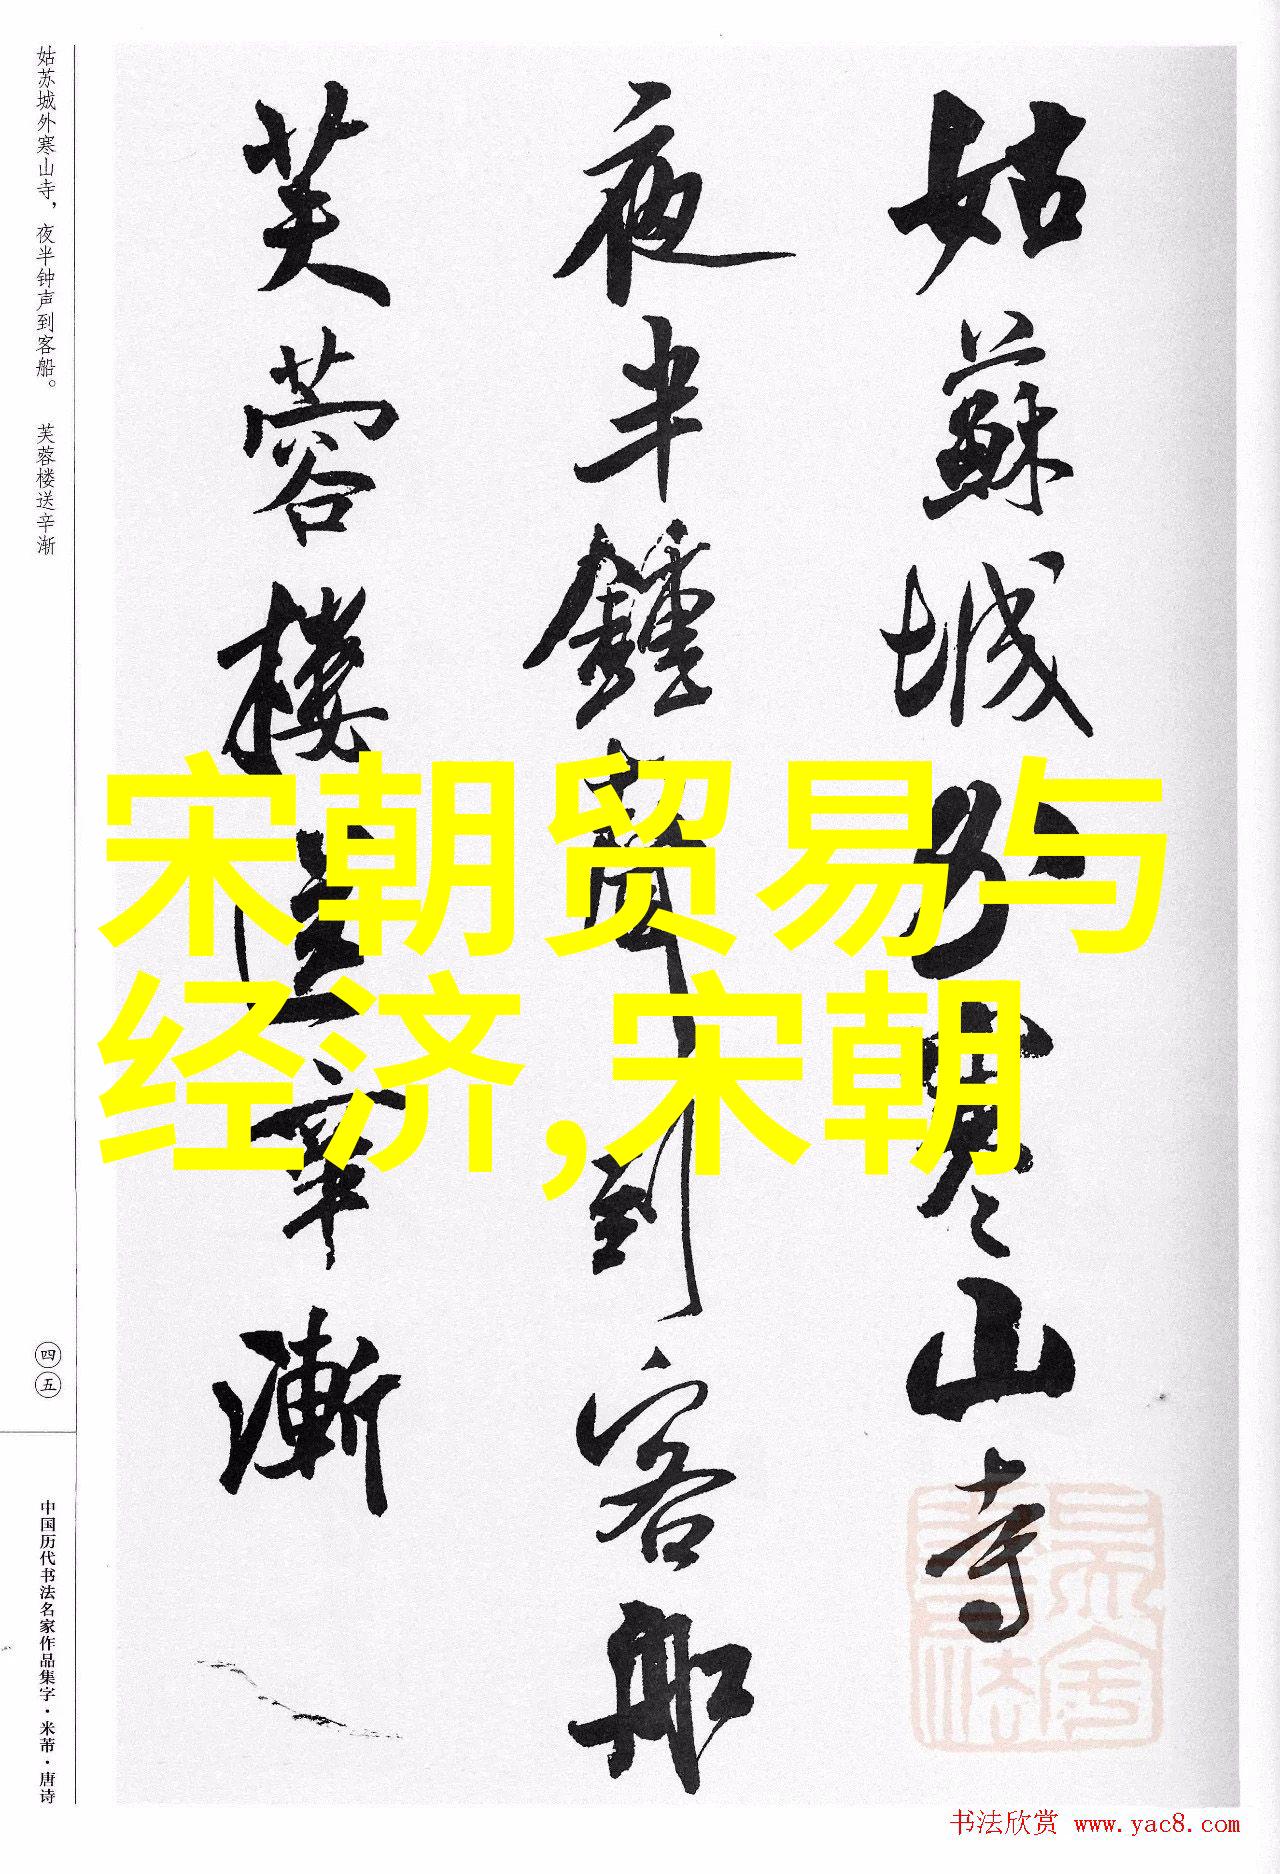 姑蘇城外寒山寺
夜半鍾聲到客船
芙蓉樓送辛漸
宋朝贸易与
经济,宋朝
姑苏城外寒山寺，夜半钟声到客船。 芙蓉楼送辛渐
四五
中国历代书法名家作品集字·米芾·唐诗
书法欣赏 www.yac8.com